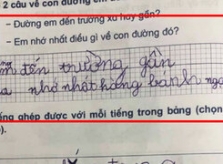 2 câu về con đường em
- Đường em đến trường xa hay gần?
- Em nhớ nhất điều gì về con đường đó?
đến trường gần
nhớ nhất hàng bánh
ghép được với mỗi tiếng trong bảng (chọn
).